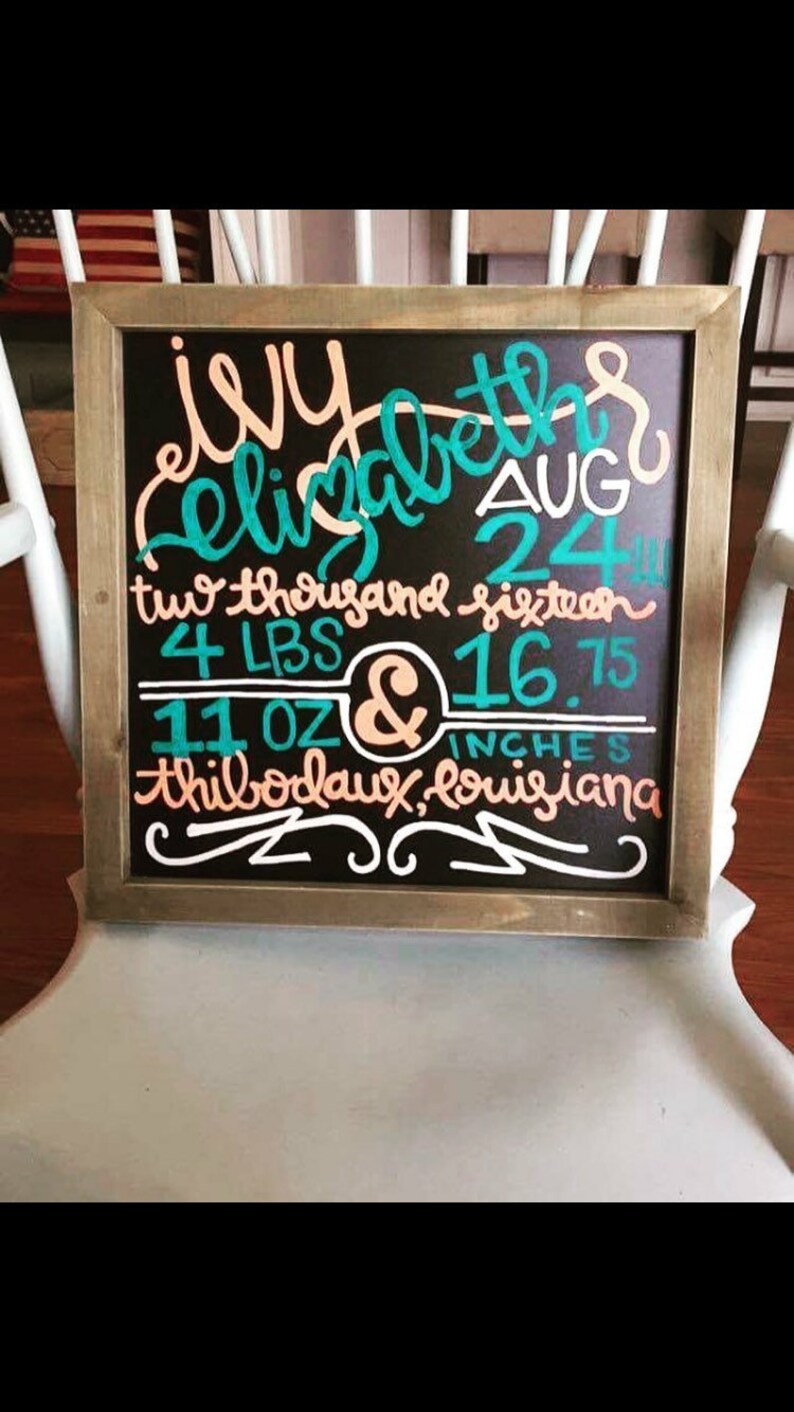 ivy
elizabeth
AUG
24!!!
two thousand sixteen
4 LBS
11 OZ
&
16.75
INCHES
thibodaux, louisiana